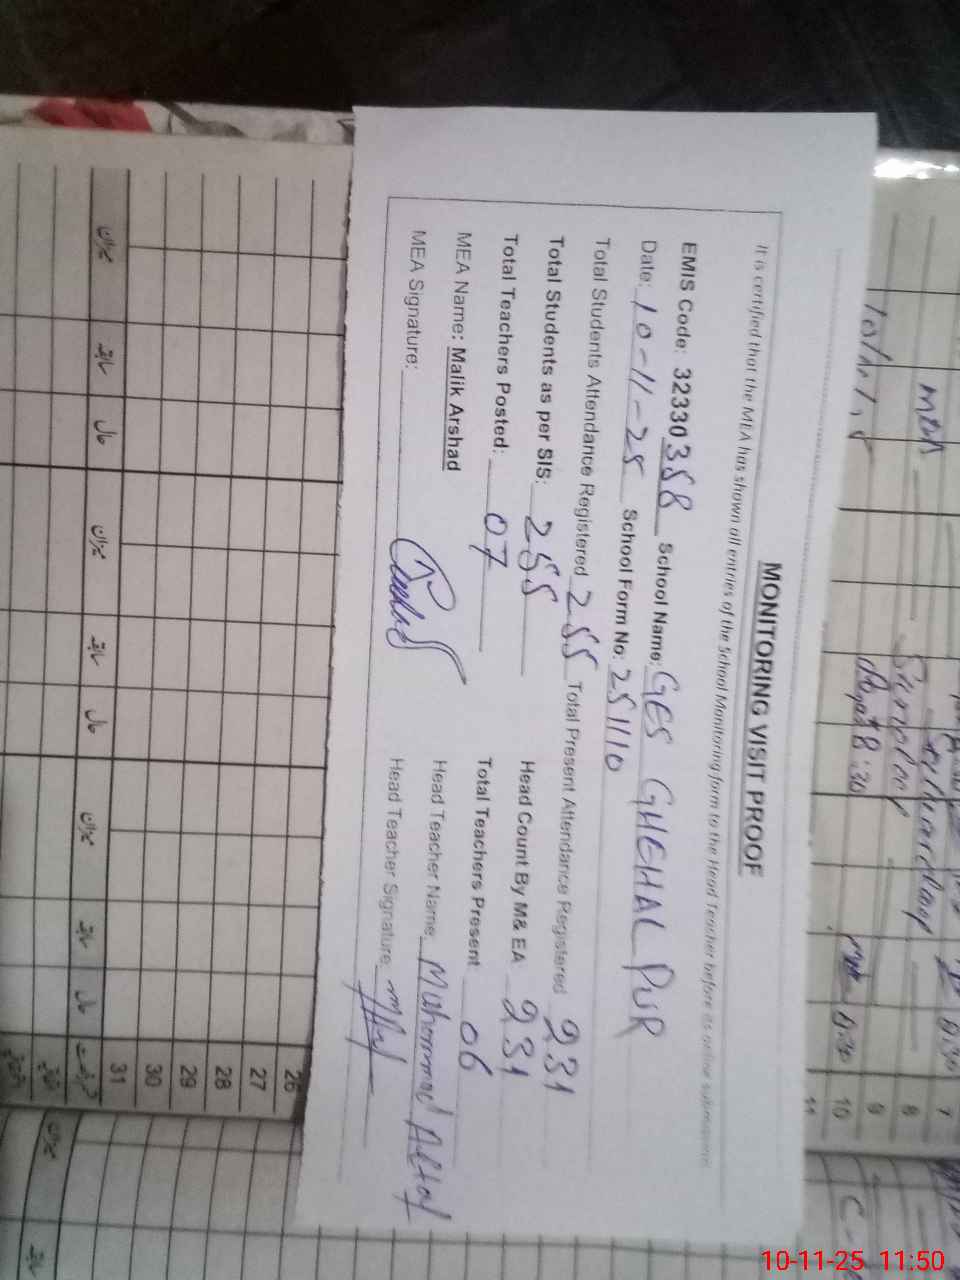 MONITORING VISIT PROOF
It is certified that the MEA has shown all entries of the School Monitoring form to the Head Teacher before its online submission
EMIS Code: 32330358 School Name: GES GHEHAL PUR
Date: 10-11-25 School Form No: 251110
Total Students Attendance Registered 255 Total Present Attendance Registered 231
Total Students as per SIS: 255 Head Count By M& EA 231
Total Teachers Posted: 07 Total Teachers Present 06
MEA Name: Malik Arshad Head Teacher Name Muhammad Altaf
MEA Signature: Head Teacher Signature
MEA
Sunday
8:30
7
8
9
10
11
26
27
28
29
30
31
میزان سابقہ حال میزان سابقہ حال میزان سابقہ حال
10-11-25 11:50